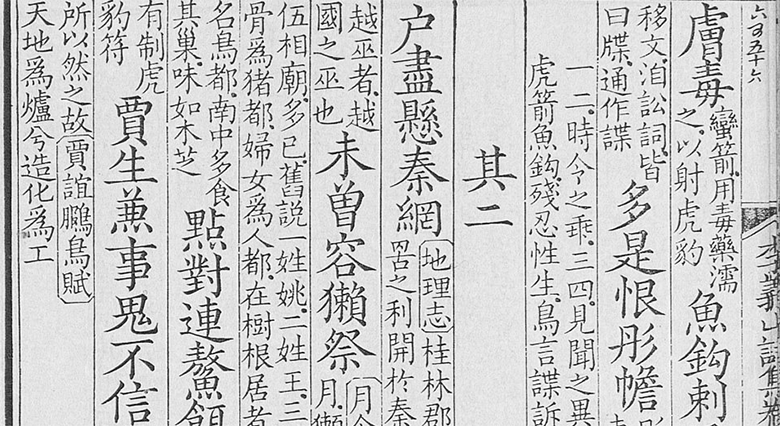 六百五十六
李義山詩集卷
膚毒
蠻箭用毒藥濡
之以射虎豹
魚鈎刺
移文洎訟詞皆
曰牒通作諜
多是恨彤幨
一二時令之乖三四見聞之異
虎箭魚鈎殘忍性生鳥言諜訴
其二
户盡懸秦網
地理志桂林郡
罟之利開於秦
越巫者越
國之巫也
未曾容獺祭
月令
月獺
伍相廟多已舊說一姓姚二姓王三
骨爲猪都婦女爲人都在樹根居者
名鳥都南中多食
其巢味如木芝
點對連鼇
有制虎
豹符
賈生兼事鬼不信
所以然之故賈誼鵩鳥賦
天地爲爐兮造化爲工